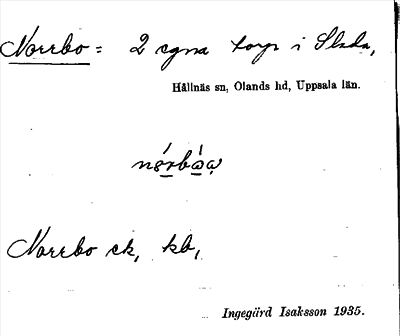 Norrbo = 2 egna torp i Slada,
Hållnäs sn, Olands hd, Uppsala län.
Norrbo ek, kb,
Ingegärd Isaksson 1935.